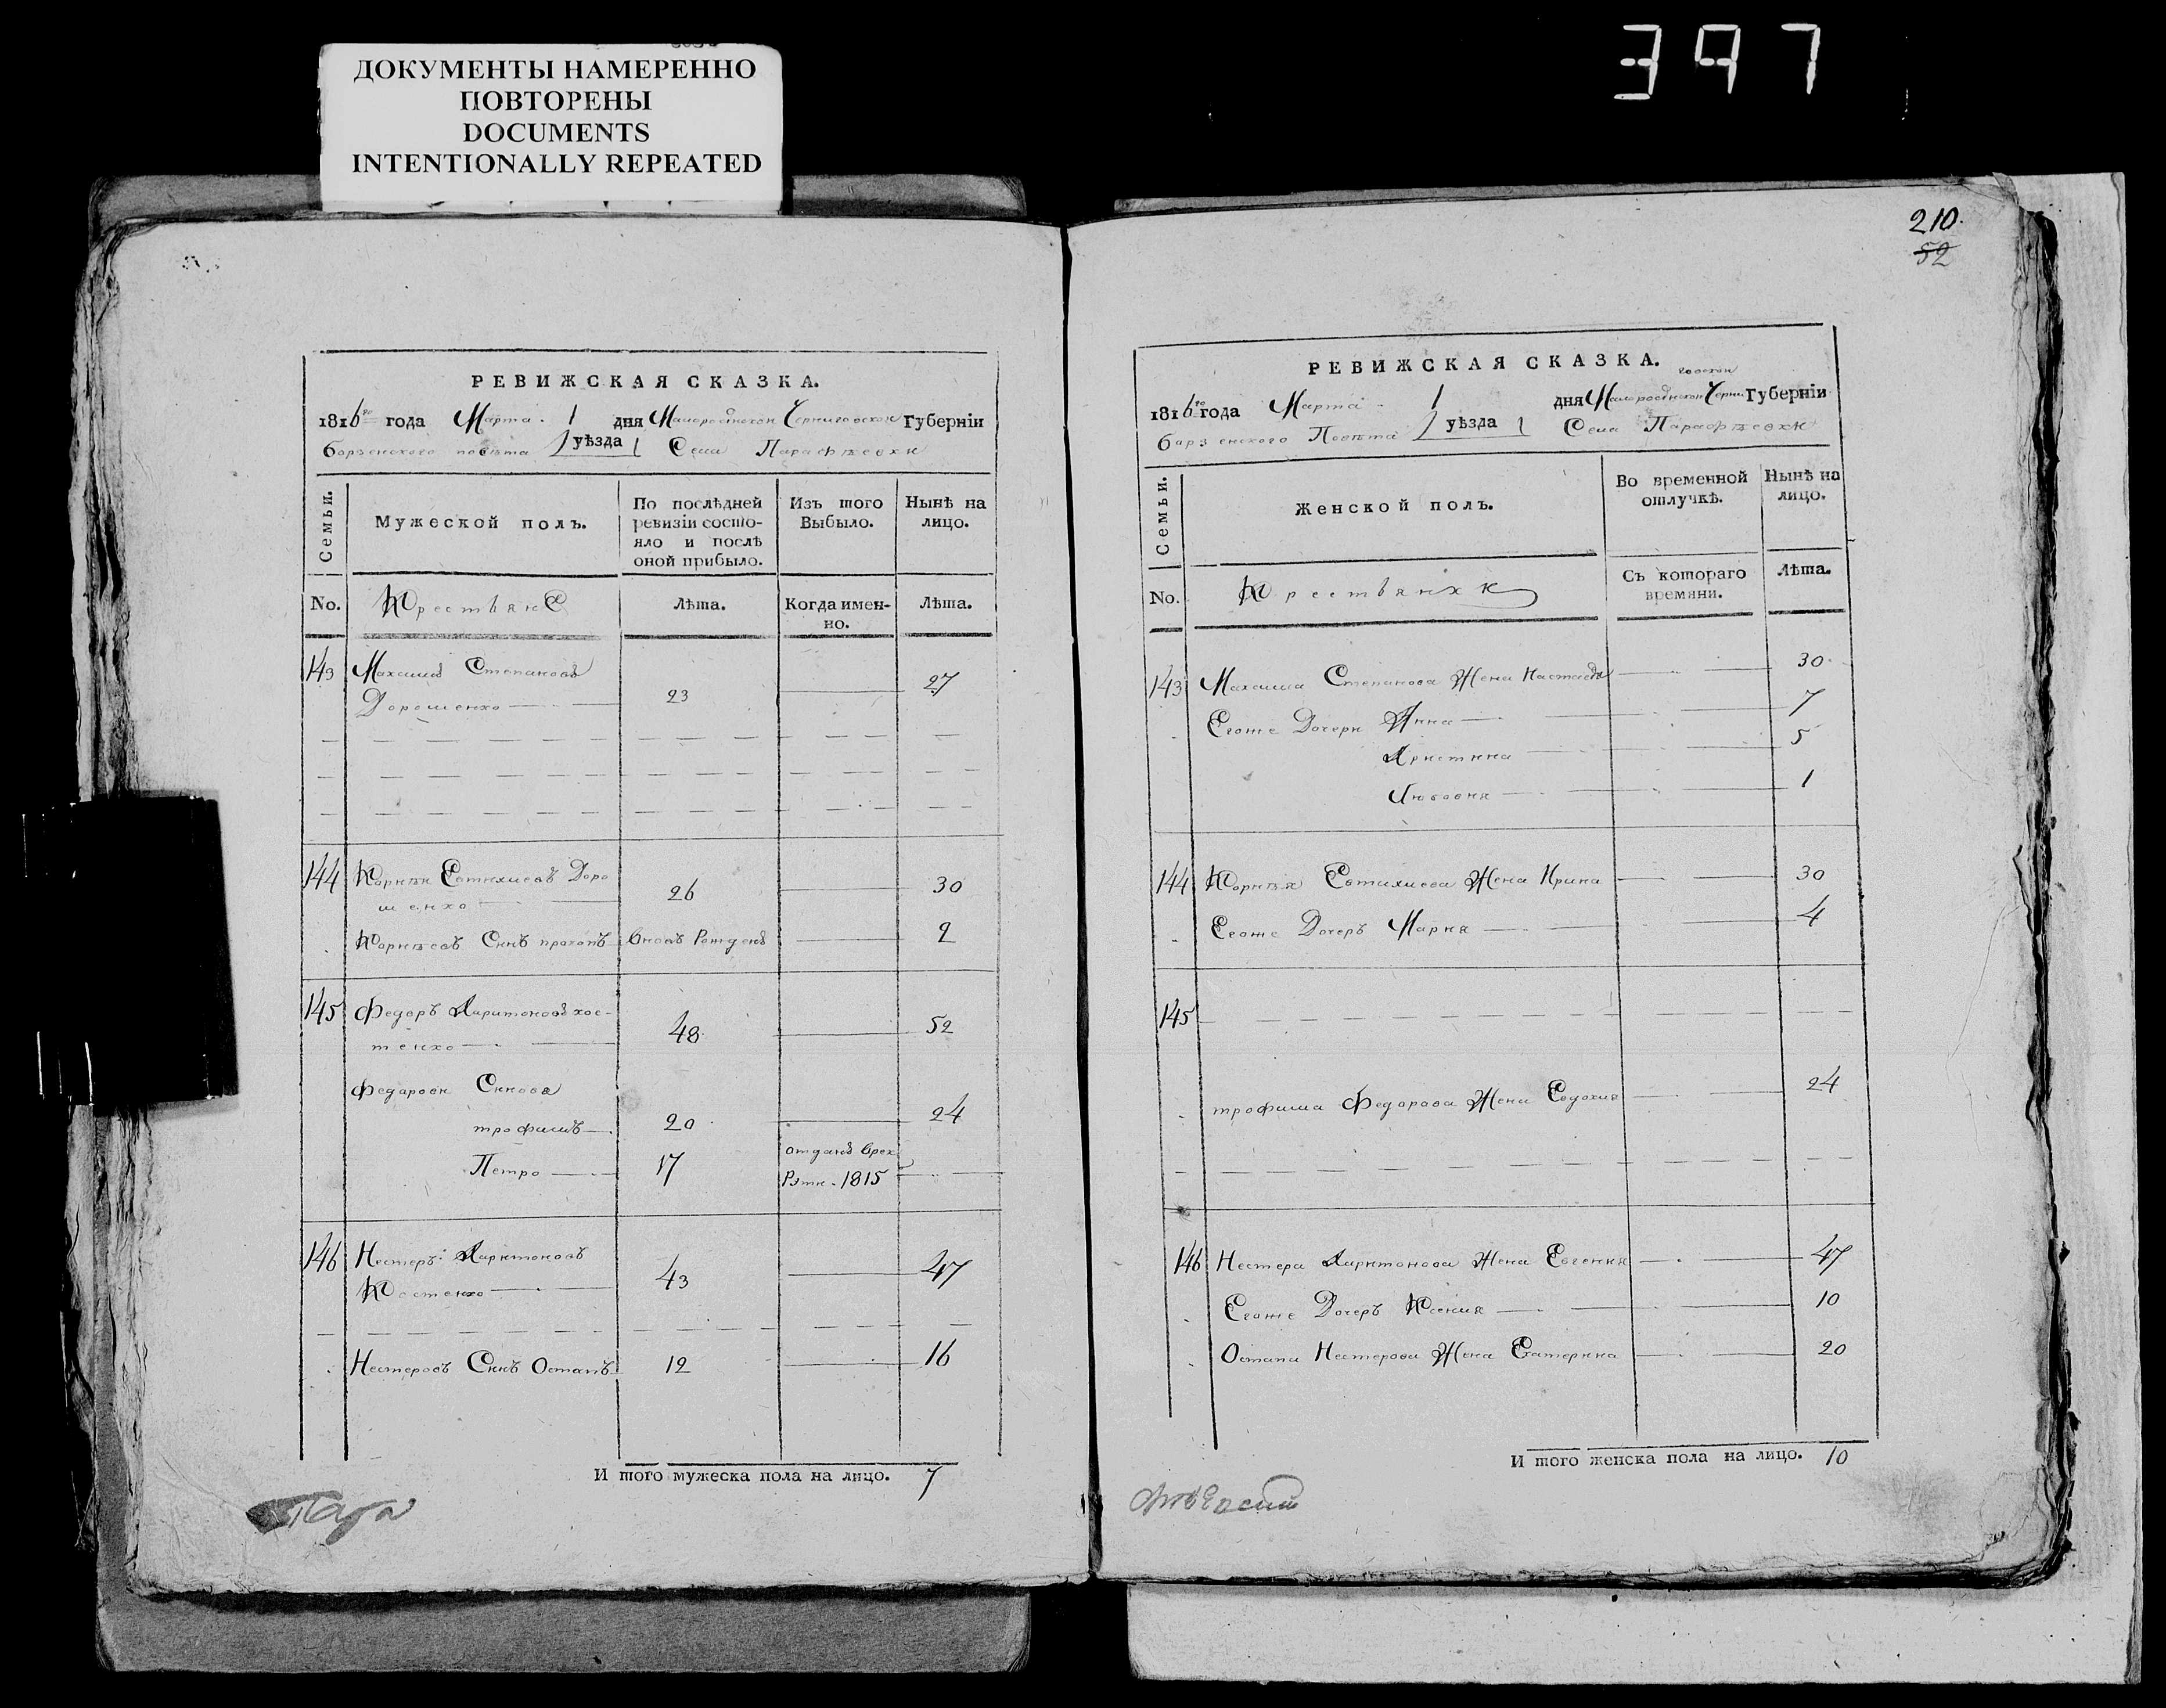 397
ДОКУМЕНТЫ НАМЕРЕННО
ПОВТОРЕНЫ
DOCUMENTS
INTENTIONALLY REPEATED
РЕВИЖСКАЯ СКАЗКА.
1816го года Марта 1 дня Малороссійской Черниговской Губерніи
борзенского повѣта уѣзда Села Парафѣевки
Семьи.
Мужеской полъ.
По послѣдней
ревизіи состо-
яло и послѣ
оной прибыло.
Изъ того
Выбыло.
Нынѣ на
лицо.
No.
Крестьяне
Лѣта.
Когда имен-
но.
Лѣта.
143 Максимъ Степановъ
Дорошенко 23 27
144 Корнѣй Евтихиевъ Доро
шенко 26 30
Корнѣевъ Синъ прокопъ вновь Рожденъ 2
145 Федоръ Харитоновъ кос-
тенко 48 52
Федоровы Синовя
трофимъ 20 24
Петро 17 отданъ врек
Руты 1815
146 Нестеръ Харитоновъ
Костенко 43 47
Нестеровъ Синъ Остапъ 12 16
И того мужеска пола на лицо. 7
210
52
РЕВИЖСКАЯ СКАЗКА.
1816го года Марта 1 дня Малороссійской Черни говской Губерніи
борзенского Повѣта уѣзда Села Парафѣевки
Семьи.
Женской полъ.
Во временной
отлучкѣ.
Нынѣ на
лицо.
No.
Крестьянки
Съ котораго
времяни.
Лѣта.
143 Максима Степанова Жена Настасія 30
Егоже Дочери Анна 7
Христина 5
Любовня 1
144 Корнѣя Евтихиева Жена Ирина 30
Егоже Дочеръ Мария 4
145
трофима Федорова Жена Евдокия 24
146 Нестера Харитонова Жена Евгения 47
Егоже Дочеръ Ксения 10
Остапа Нестерова Жена Екатерина 20
И того женска пола на лицо. 10